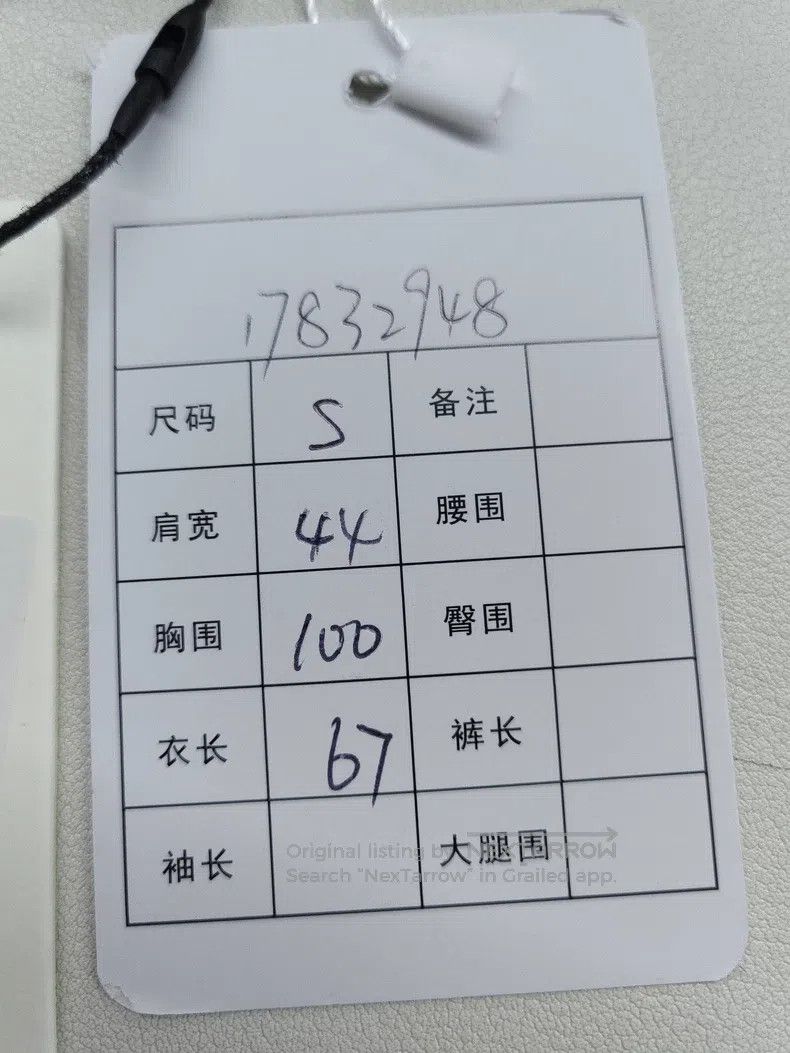 17832948
尺码 S 备注
肩宽 44 腰围
胸围 100 臀围
衣长 67 裤长
袖长 大腿围
Original listing by NEXTARROW
Search "NexTarrow" in Grailed app.